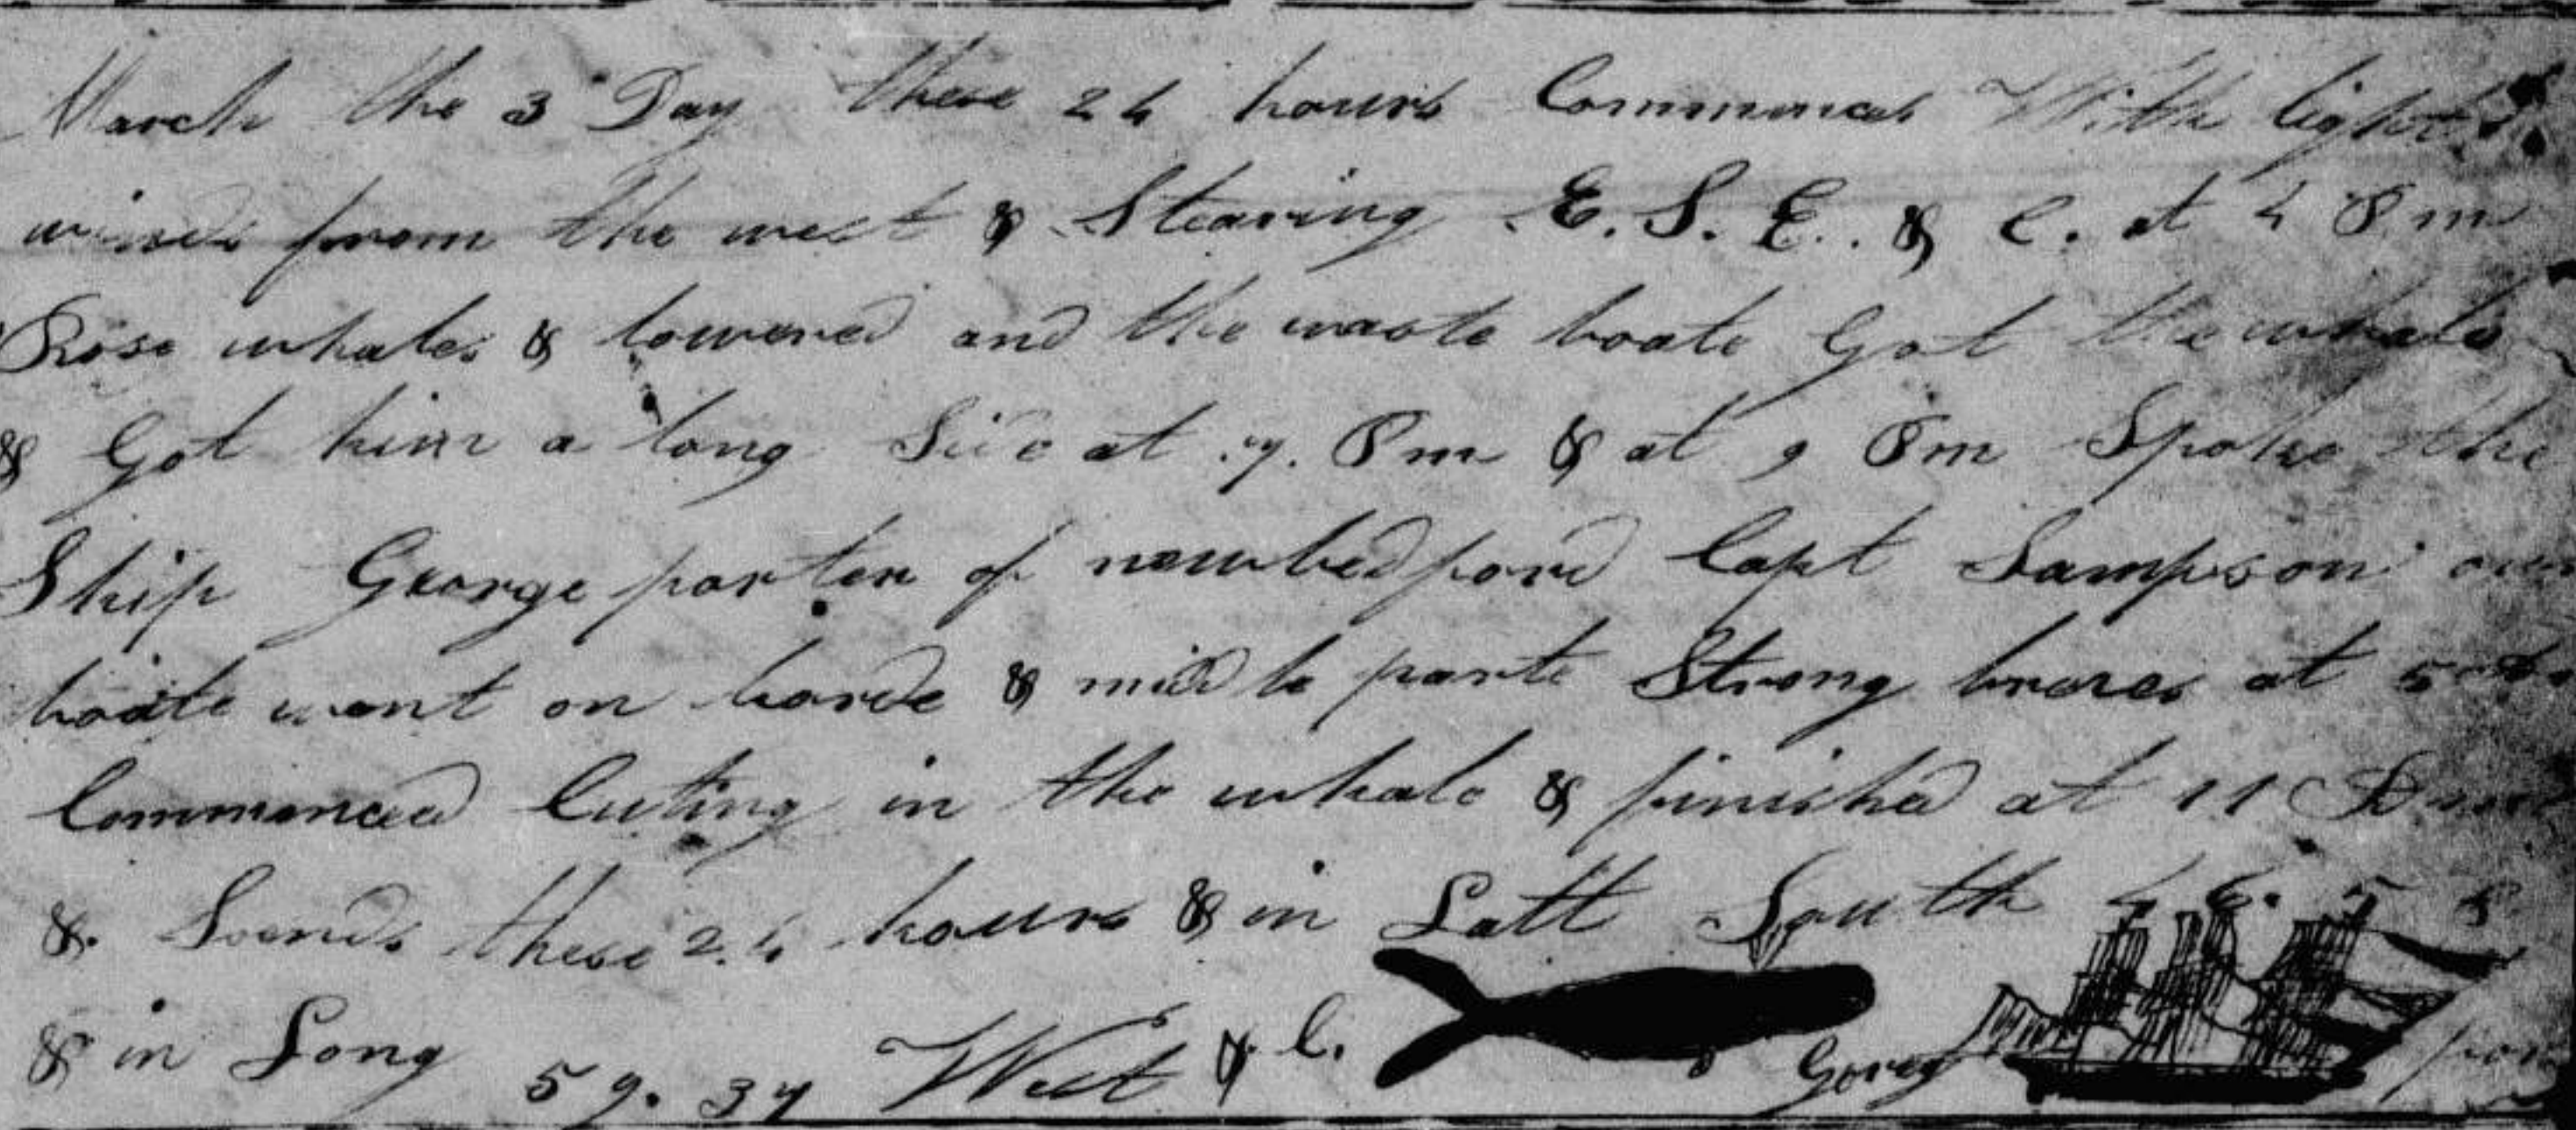 March the 3 Day these 24 hours Commences With light
winds from the west & Stearing E. S. E. & C. at 4 Pm
Rose whales & lowered and the waste boate Got the whale
& Got him a long Side at 7. Pm & at 9 Pm Spoke the
Ship George porter of newbedford Capt Sampson our
boate went on borde & midle parte Strong brezes at 5
Commenced Cuting in the whale & finished at 11
&. So ends these 24 hours & in Latt South 46. 58
& in Long 59. 37 West & C. Gorег por